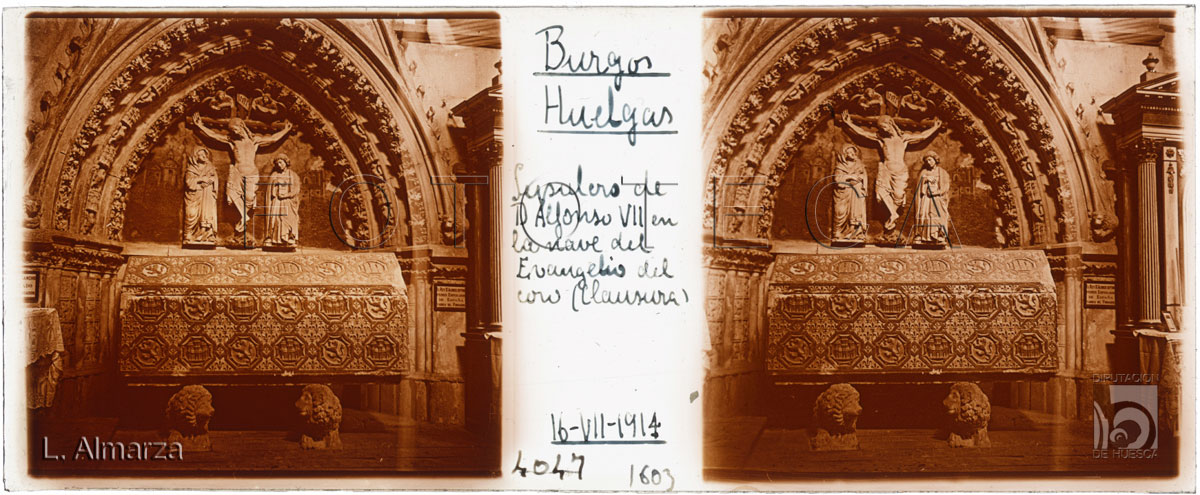 Burgos
Huelgas
Sepulcro de
D Alfonso VII en
la nave del
Evangelio del
coro (Clausura)
16-VII-1914
4047 1603
FOTOTECA
L. Almarza
DIPUTACIÓN
DE HUESCA